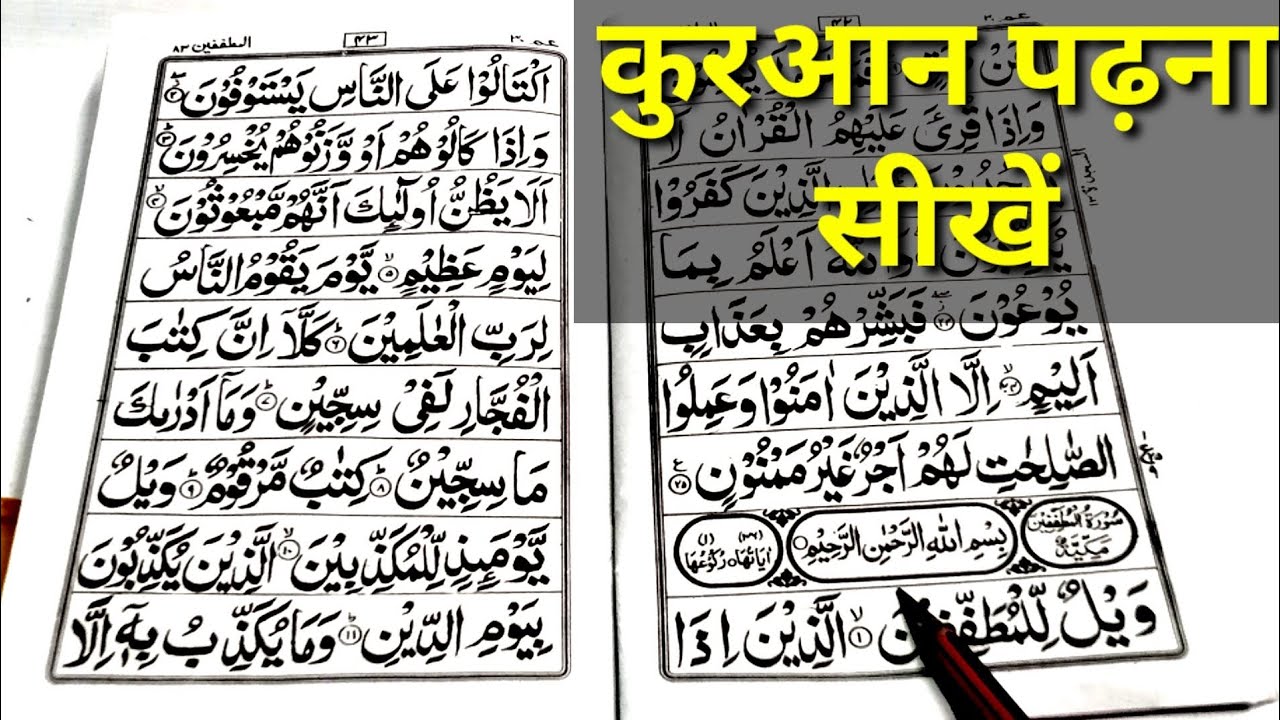 कुरआन पढ़ना
सीखें
عم ٣٠
٤٢
وَاِذَا قُرِئَ عَلَيْهِمُ الْقُرْاٰنُ لَا
الَّذِيْنَ كَفَرُوْا
اَعْلَمُ بِمَا
يُوْعُوْنَ ﴿٢٣﴾ فَبَشِّرْهُمْ بِعَذَابٍ
اَلِيْمٍ ﴿٢٤﴾ اِلَّا الَّذِيْنَ اٰمَنُوْا وَعَمِلُوا
الصّٰلِحٰتِ لَهُمْ اَجْرٌ غَيْرُ مَمْنُوْنٍ ﴿٢٥﴾
سُوْرَةُ الْمُطَفِّفِيْنَ مَكِّيَّةٌ
بِسْمِ اللّٰهِ الرَّحْمٰنِ الرَّحِيْمِ
(٣٦) اٰيَاتُهَا (١) رُكُوْعُهَا
وَيْلٌ لِّلْمُطَفِّفِيْنَ ﴿١﴾ الَّذِيْنَ اِذَا
عم ٣٠
٤٣
المطففين ٨٣
اكْتَالُوْا عَلَى النَّاسِ يَسْتَوْفُوْنَ ﴿٢﴾
وَاِذَا كَالُوْهُمْ اَوْ وَّزَنُوْهُمْ يُخْسِرُوْنَ ﴿٣﴾
اَلَا يَظُنُّ اُولٰٓئِكَ اَنَّهُمْ مَّبْعُوْثُوْنَ ﴿٤﴾
لِيَوْمٍ عَظِيْمٍ ﴿٥﴾ يَّوْمَ يَقُوْمُ النَّاسُ
لِرَبِّ الْعٰلَمِيْنَ ﴿٦﴾ كَلَّآ اِنَّ كِتٰبَ
الْفُجَّارِ لَفِيْ سِجِّيْنٍ ﴿٧﴾ وَمَآ اَدْرٰىكَ
مَا سِجِّيْنٌ ﴿٨﴾ كِتٰبٌ مَّرْقُوْمٌ ﴿٩﴾ وَيْلٌ
يَّوْمَئِذٍ لِّلْمُكَذِّبِيْنَ ﴿١٠﴾ الَّذِيْنَ يُكَذِّبُوْنَ
بِيَوْمِ الدِّيْنِ ﴿١١﴾ وَمَا يُكَذِّبُ بِهٖٓ اِلَّا